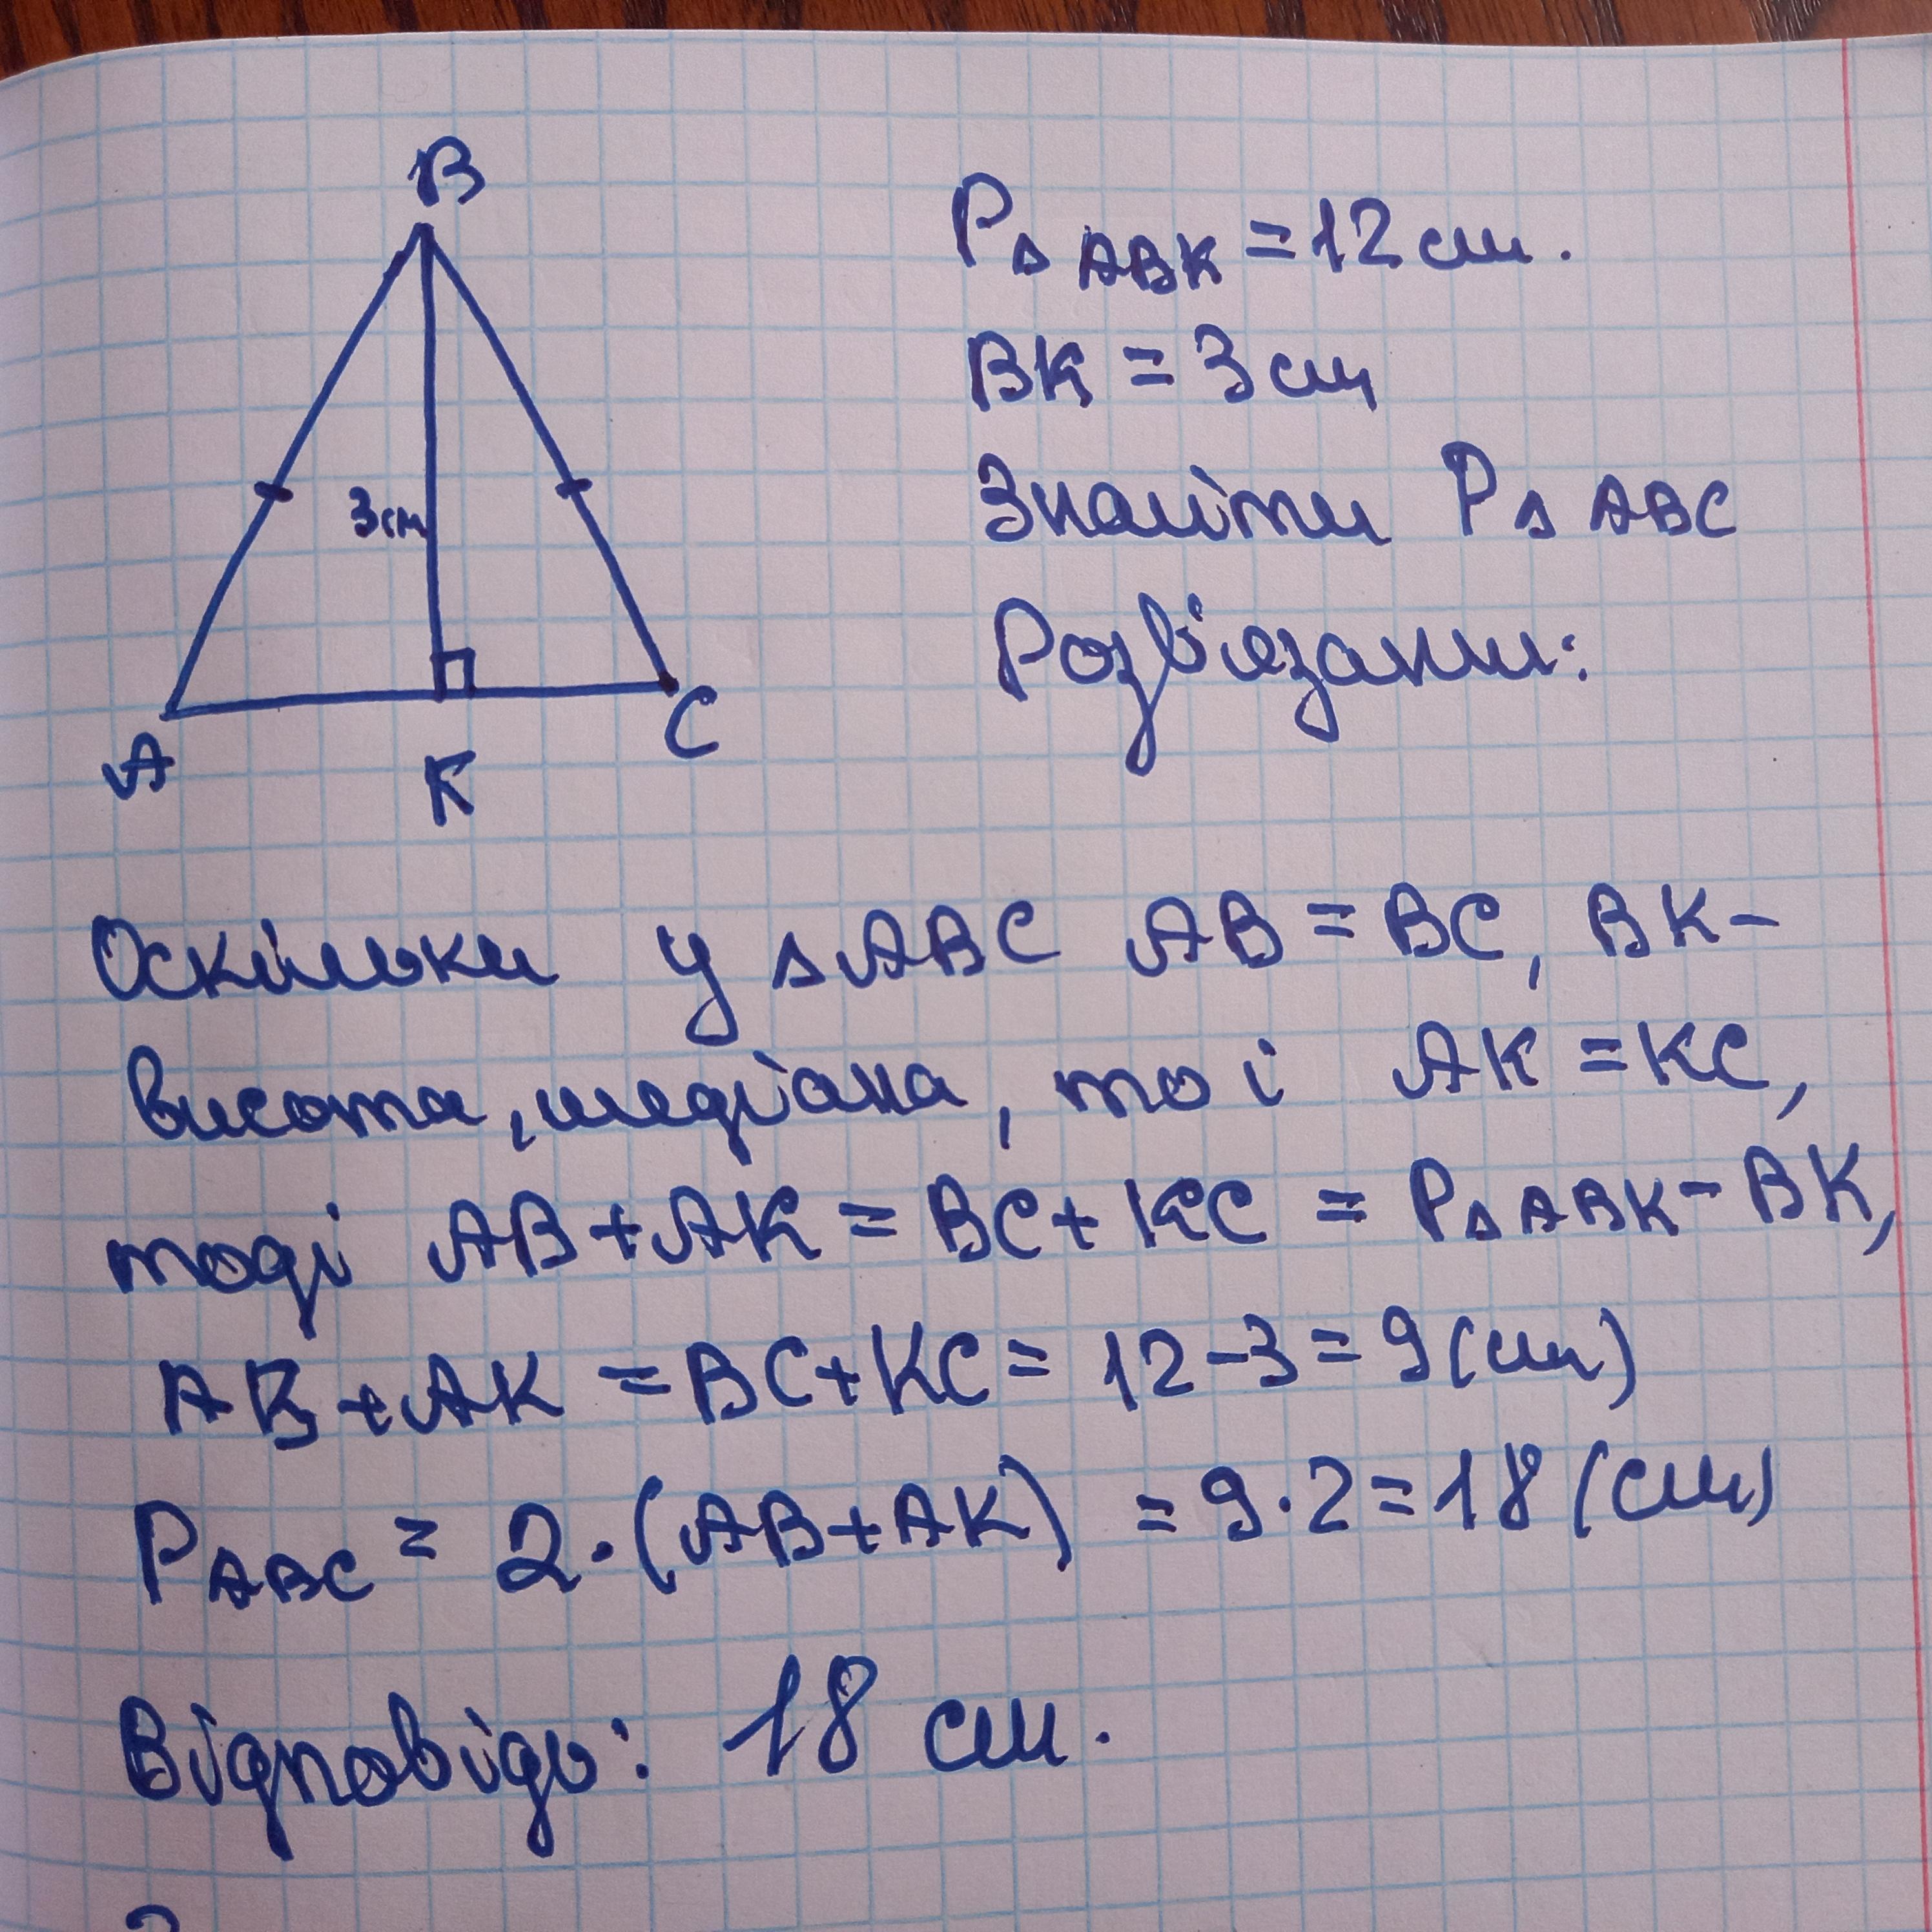 B
3см
A
K
C
P△ABK = 12 см.
BK = 3 см
Знайти P△ABC
Розв'язання:
Оскільки у △ABC AB = BC, BK –
висота, медіана, то і AK = KC,
тоді AB + AK = BC + KC = P△ABK – BK,
AB + AK = BC + KC = 12 – 3 = 9 (см)
PABC = 2 · (AB + AK) = 9 · 2 = 18 (см)
Відповідь: 18 см.